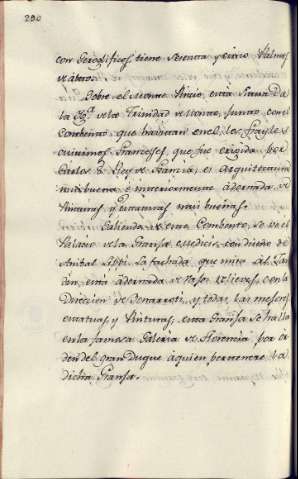 290
con Geroglificos tiene setenta y cinco Palmos
de altero.
Sobre el Monte Pincio, en la Punta
la Yg.ª de la Trinidad de Monte, junto con el
Combento que habitan en el los frayles
Minimos Franceses, que fue erigida por
Carlos Rey de Francia, es arquitectura
mui buena è interiormente adornada de
Pinturas, y Estatuas mui buenas.
Saliendo de este Combento, se ve el
Palacio de la Granja Medicis con diseño de
Anibal Lippi. La fachada, que mira al Jar-
din, està adornada de vasos relieves, con la
Direccion de, y todas las mejores
estatuas, y Pinturas, esta Granja se halla
en la famosa Galeria de Florencia por or-
den del gran Duque à quien pertenece la
dicha Granja.